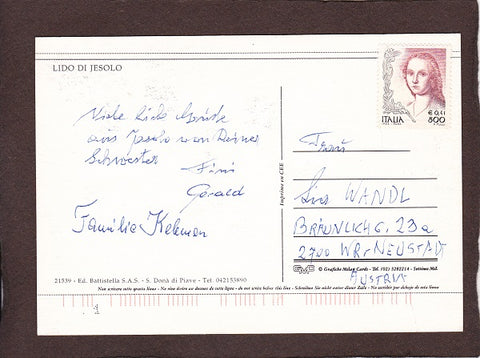 LIDO DI JESOLO
Viele liebe Grüße
aus Jesolo von Deiner
Schwester Fini
Gerald
Familie
€ 0,41
ITALIA 800
Frau
WANDL
BRÄUNLICHG. 23a
2700 WR. NEUSTADT
AUSTRIA
Imprimé en CEE
© Grafiche Milan Cards - Tel. (02) 3282214 - Settimo Mil.
21539 - Ed. Battistella S.A.S. - S. Donà di Piave - Tel. 042153890
Non scrivere sotto questa linea - Ne rien écrire au dessous de cette ligne - do not write below this line - Schreiben Sie nicht unter dieser Zeile - No escribir por debajo de esta linea
1